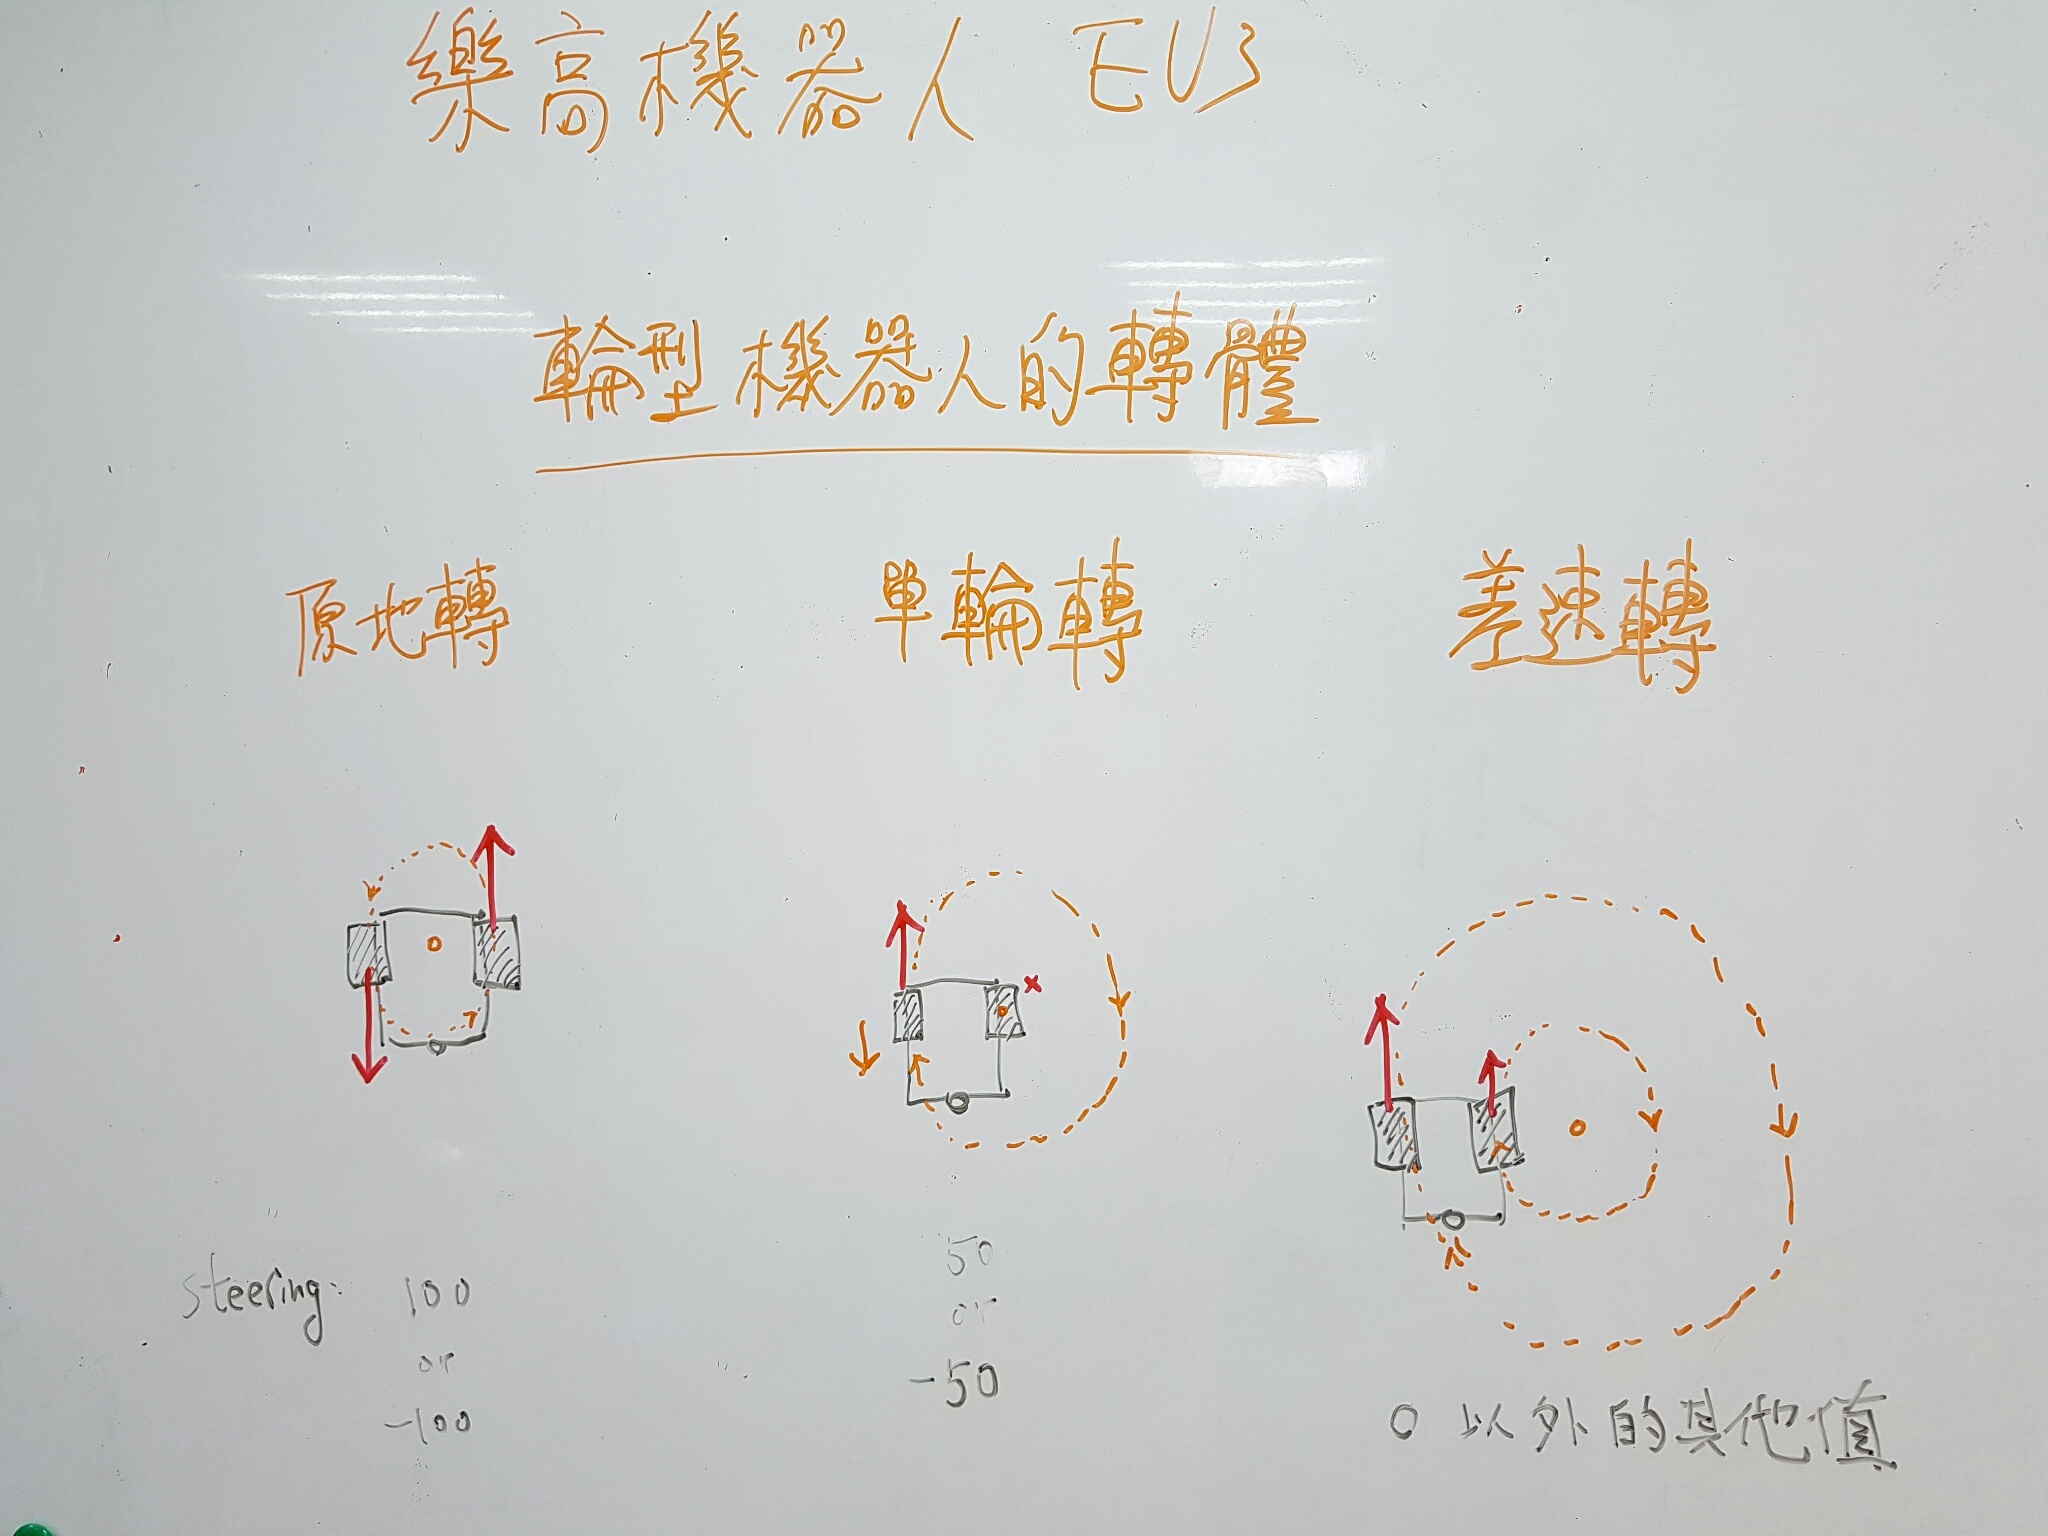 樂高機器人 EV3
輪型機器人的轉體
原地轉 單輪轉 差速轉
steering: 100 or -100
50 or -50
0 以外的其他值